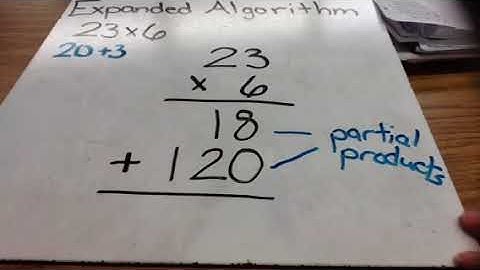 Expanded Algorithm
23×6
20+3
23
× 6
18
+ 120
partial
products